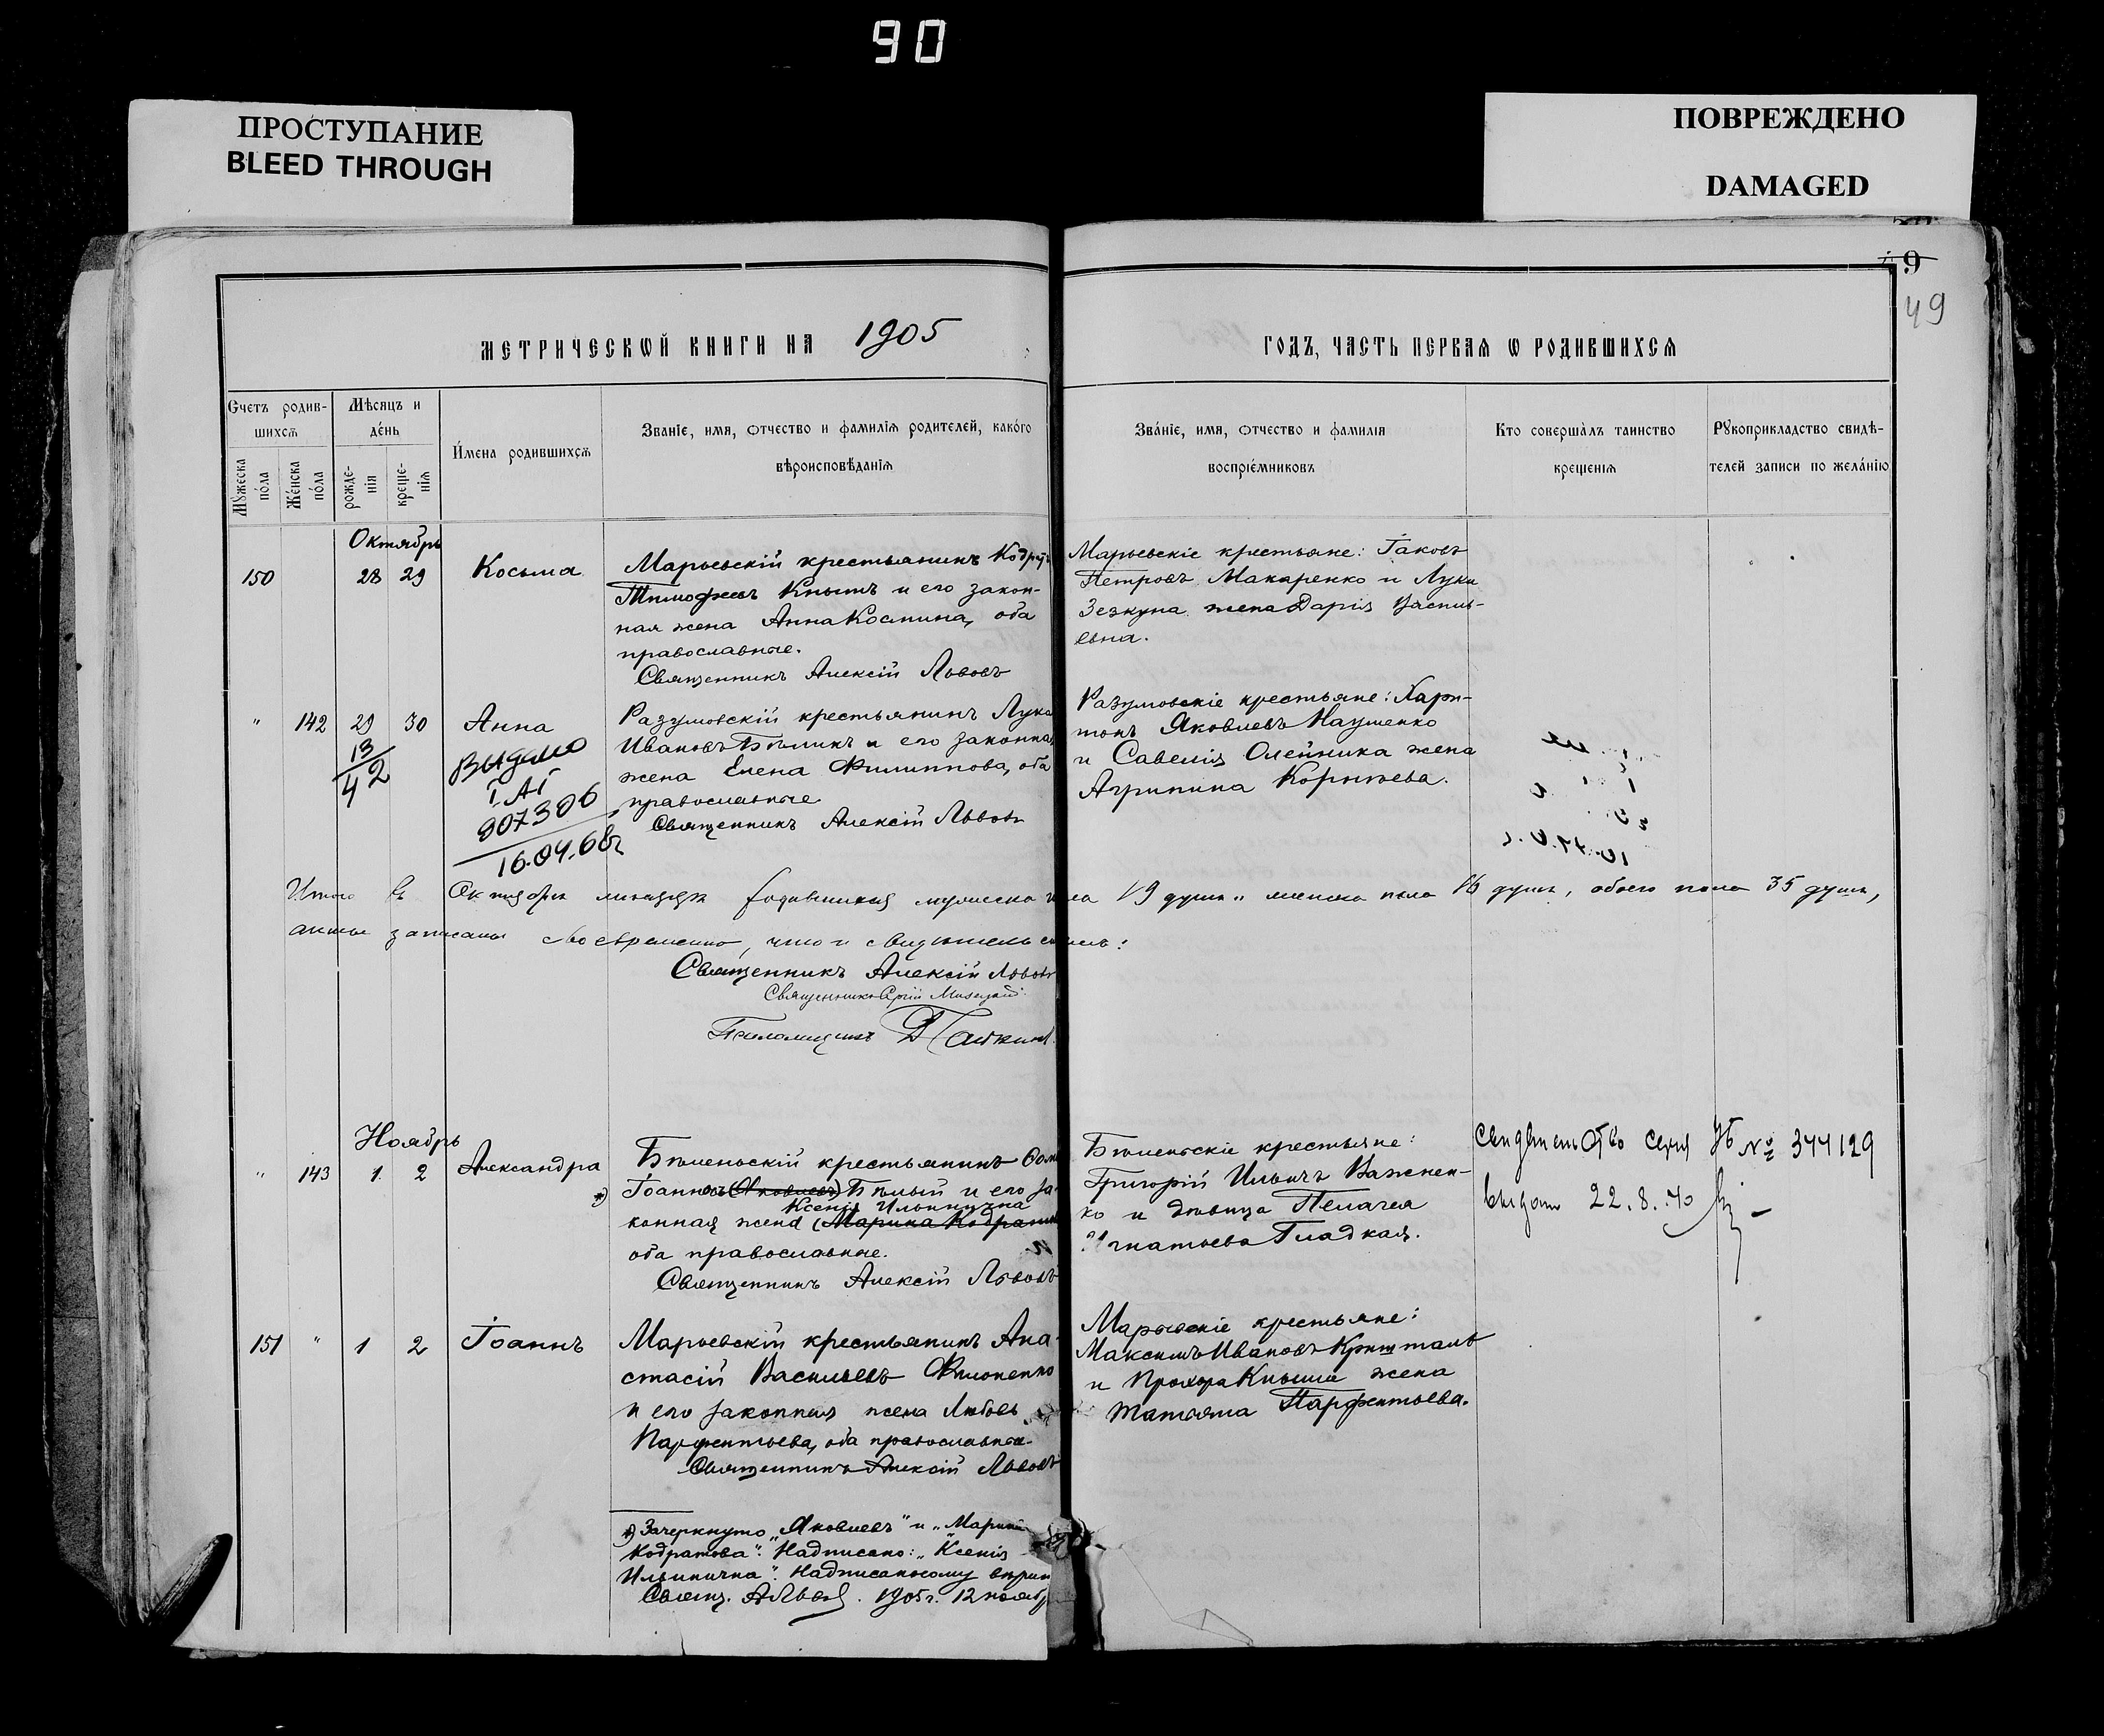 90
ПРОСТУПАНИЕ
BLEED THROUGH
ПОВРЕЖДЕНО
DAMAGED
9
49
МЕТРИЧЕСКѠЙ КНИГИ НА 1905
ГОДЪ, ЧАСТЬ ПЕРВАЯ Ѡ РОДИВШИХСЯ
Счетъ родив-
шихся
Мѣсяцъ и
день
Мꙋжеска
пола
Женска
пола
рожде-
нія
креще-
нія
Имена родившихся
Званіе, имя, отчество и фамилія родителей, какого
вѣроисповѣданія
Званіе, имя, отчество и фамилія
воспріемниковъ
Кто совершалъ таинство
крещенія
Рꙋкоприкладство свидѣ-
телей записи по желанію
Октябрь
150 28 29 Косьма
Марьевскій крестьянинъ
Тимофеевъ Кнышъ и его закон-
ная жена Анна Космина, оба
православные.
Священникъ Алексій Львовъ
Марьевскіе крестьяне: Іаковъ
Петровъ Макаренко и Луки
жена Дарія Василь-
евна.
" 142 29 30 Анна
13
42
Выдано
I АГ
907306
16.04.68г
Разумовскій крестьянинъ Лука
Ивановъ Бѣликъ и его законная
жена Елена Филиппова, оба
православные
Священникъ Алексій Львовъ
Разумовскіе крестьяне: Хари-
тонъ Яковлевъ Науменко
и Савелія Олейника жена
Агрипина Корнѣева.
Итого въ Октябрѣ мѣсяцѣ родившихся мужеска пола 19 душъ, женска пола 16 душъ, обоего пола 35 душъ,
акты записаны своевременно, что и свидѣтельствуемъ:
Священникъ Алексій Львовъ
Священникъ Сергій
Псаломщикъ
Ноябрь
" 143 1 2 Александра
Бѣленьскій крестьянинъ
*) Іоанновъ (Яковлевъ) Бѣлый и его за-
Ксенія Ильинична
конная жена (Марина Кодратова
оба православные.
Священникъ Алексій Львовъ
Бѣленьскіе крестьяне:
Григорій Ильичъ Важнен-
ко и дѣвица Пелагея
Игнатьева Гладкая.
Свидетельство серия № 344129
выдано 22.8.40
151 " 1 2 Іоаннъ
Марьевскій крестьянинъ Ана-
стасій Васильевъ Филоненко
и его законная жена Любовь
Парфентьева, оба православные.
Священникъ Алексій Львовъ
Марьевскіе крестьяне:
Максимъ Ивановъ Кришталь
и Прохора Кныша жена
Татьяна Парфентьева.
*) Зачеркнуто "Яковлевъ" и "Марина
Кодратова". Надписано: "Ксенія
Ильинична". Надписанному вѣрить
Свящ. А Львовъ. 1905 г. 12 ноября